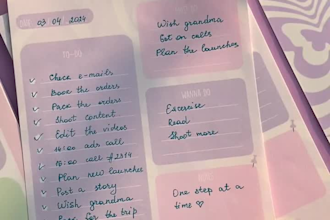 03 04 2024
TO-DO
Check e-mails
Book the orders
Pack the orders
Shoot content
Edit the videos
14:00 ads call
Plan new launches
Post a story
Wish grandma
for the trip
Wish grandma
Get on calls
Plan the launches
WANNA DO
Exercise
Read
Shoot more
One step at a
time ♡